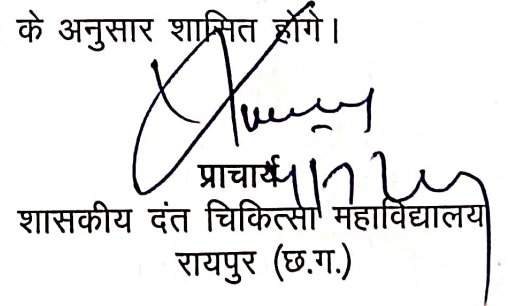 के अनुसार शासित होंगे।
प्राचार्य
शासकीय दंत चिकित्सा महाविद्यालय
रायपुर (छ.ग.)